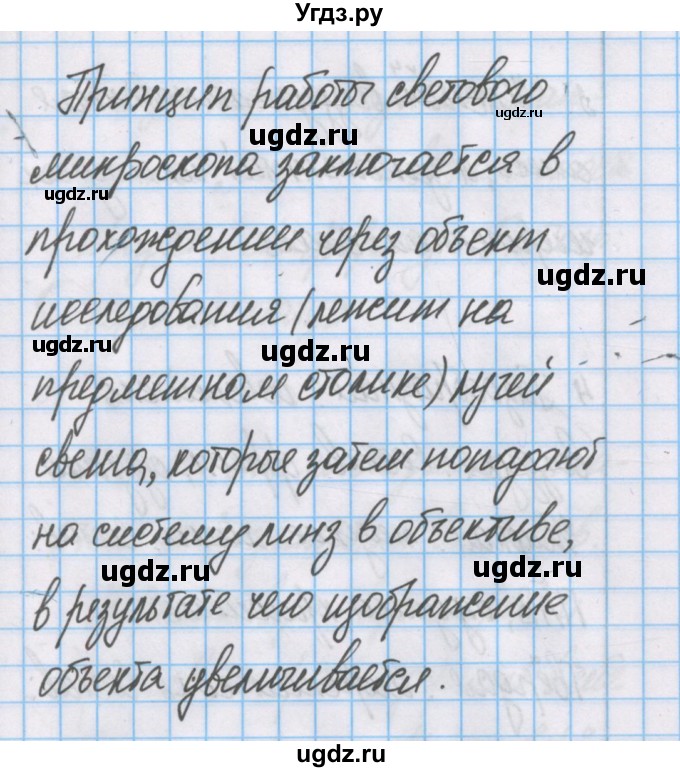 Угдз.ру
Принцип работы светового
ugdz.ru
ugdz.ru
микроскопа заключается в
ugdz.ru
прохождении через объект
ugdz.ru
исследования (лежит на
ugdz.ru
ugdz.ru
предметном столике) лучей
света, которые затем попадают
на систему линз в объективе,
ugdz.ru
ugdz.ru
в результате чего изображение
объекта увеличивается.
ugdz.ru